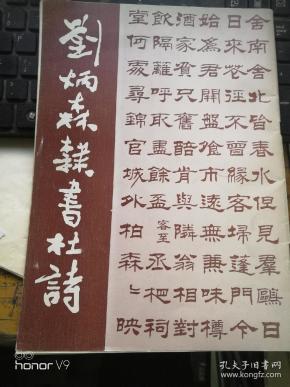 劉炳森隸書杜詩
舍南舍北皆春水但見羣鷗日
日來花徑不曾緣客掃蓬門今
始為君開盤飧市遠無兼味樽
酒家貧只舊醅肯與隣翁相對
飲隔籬呼取盡餘盃 客至 丞相祠
堂何處尋錦官城外柏森〻映
honor V9
孔夫子旧书网